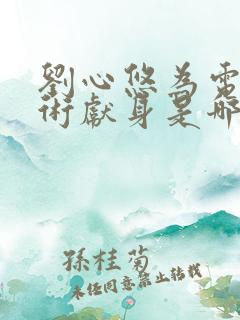 劉心悠為電
術獻身是哪
孫桂菊
未经同意禁止转载